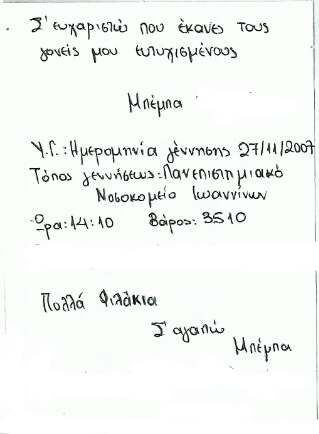 Σ' ευχαριστώ που έκανες τους
γονείς μου ευτυχισμένους
Μπέμπα
Υ.Γ.: Ημερομηνία γέννησης 27/11/2007
Τόπος γεννήσεως: Πανεπιστημιακό
Νοσοκομείο Ιωαννίνων
Ώρα: 14:10 Βάρος: 3510
Πολλά Φιλάκια
Σ' αγαπώ
Μπέμπα